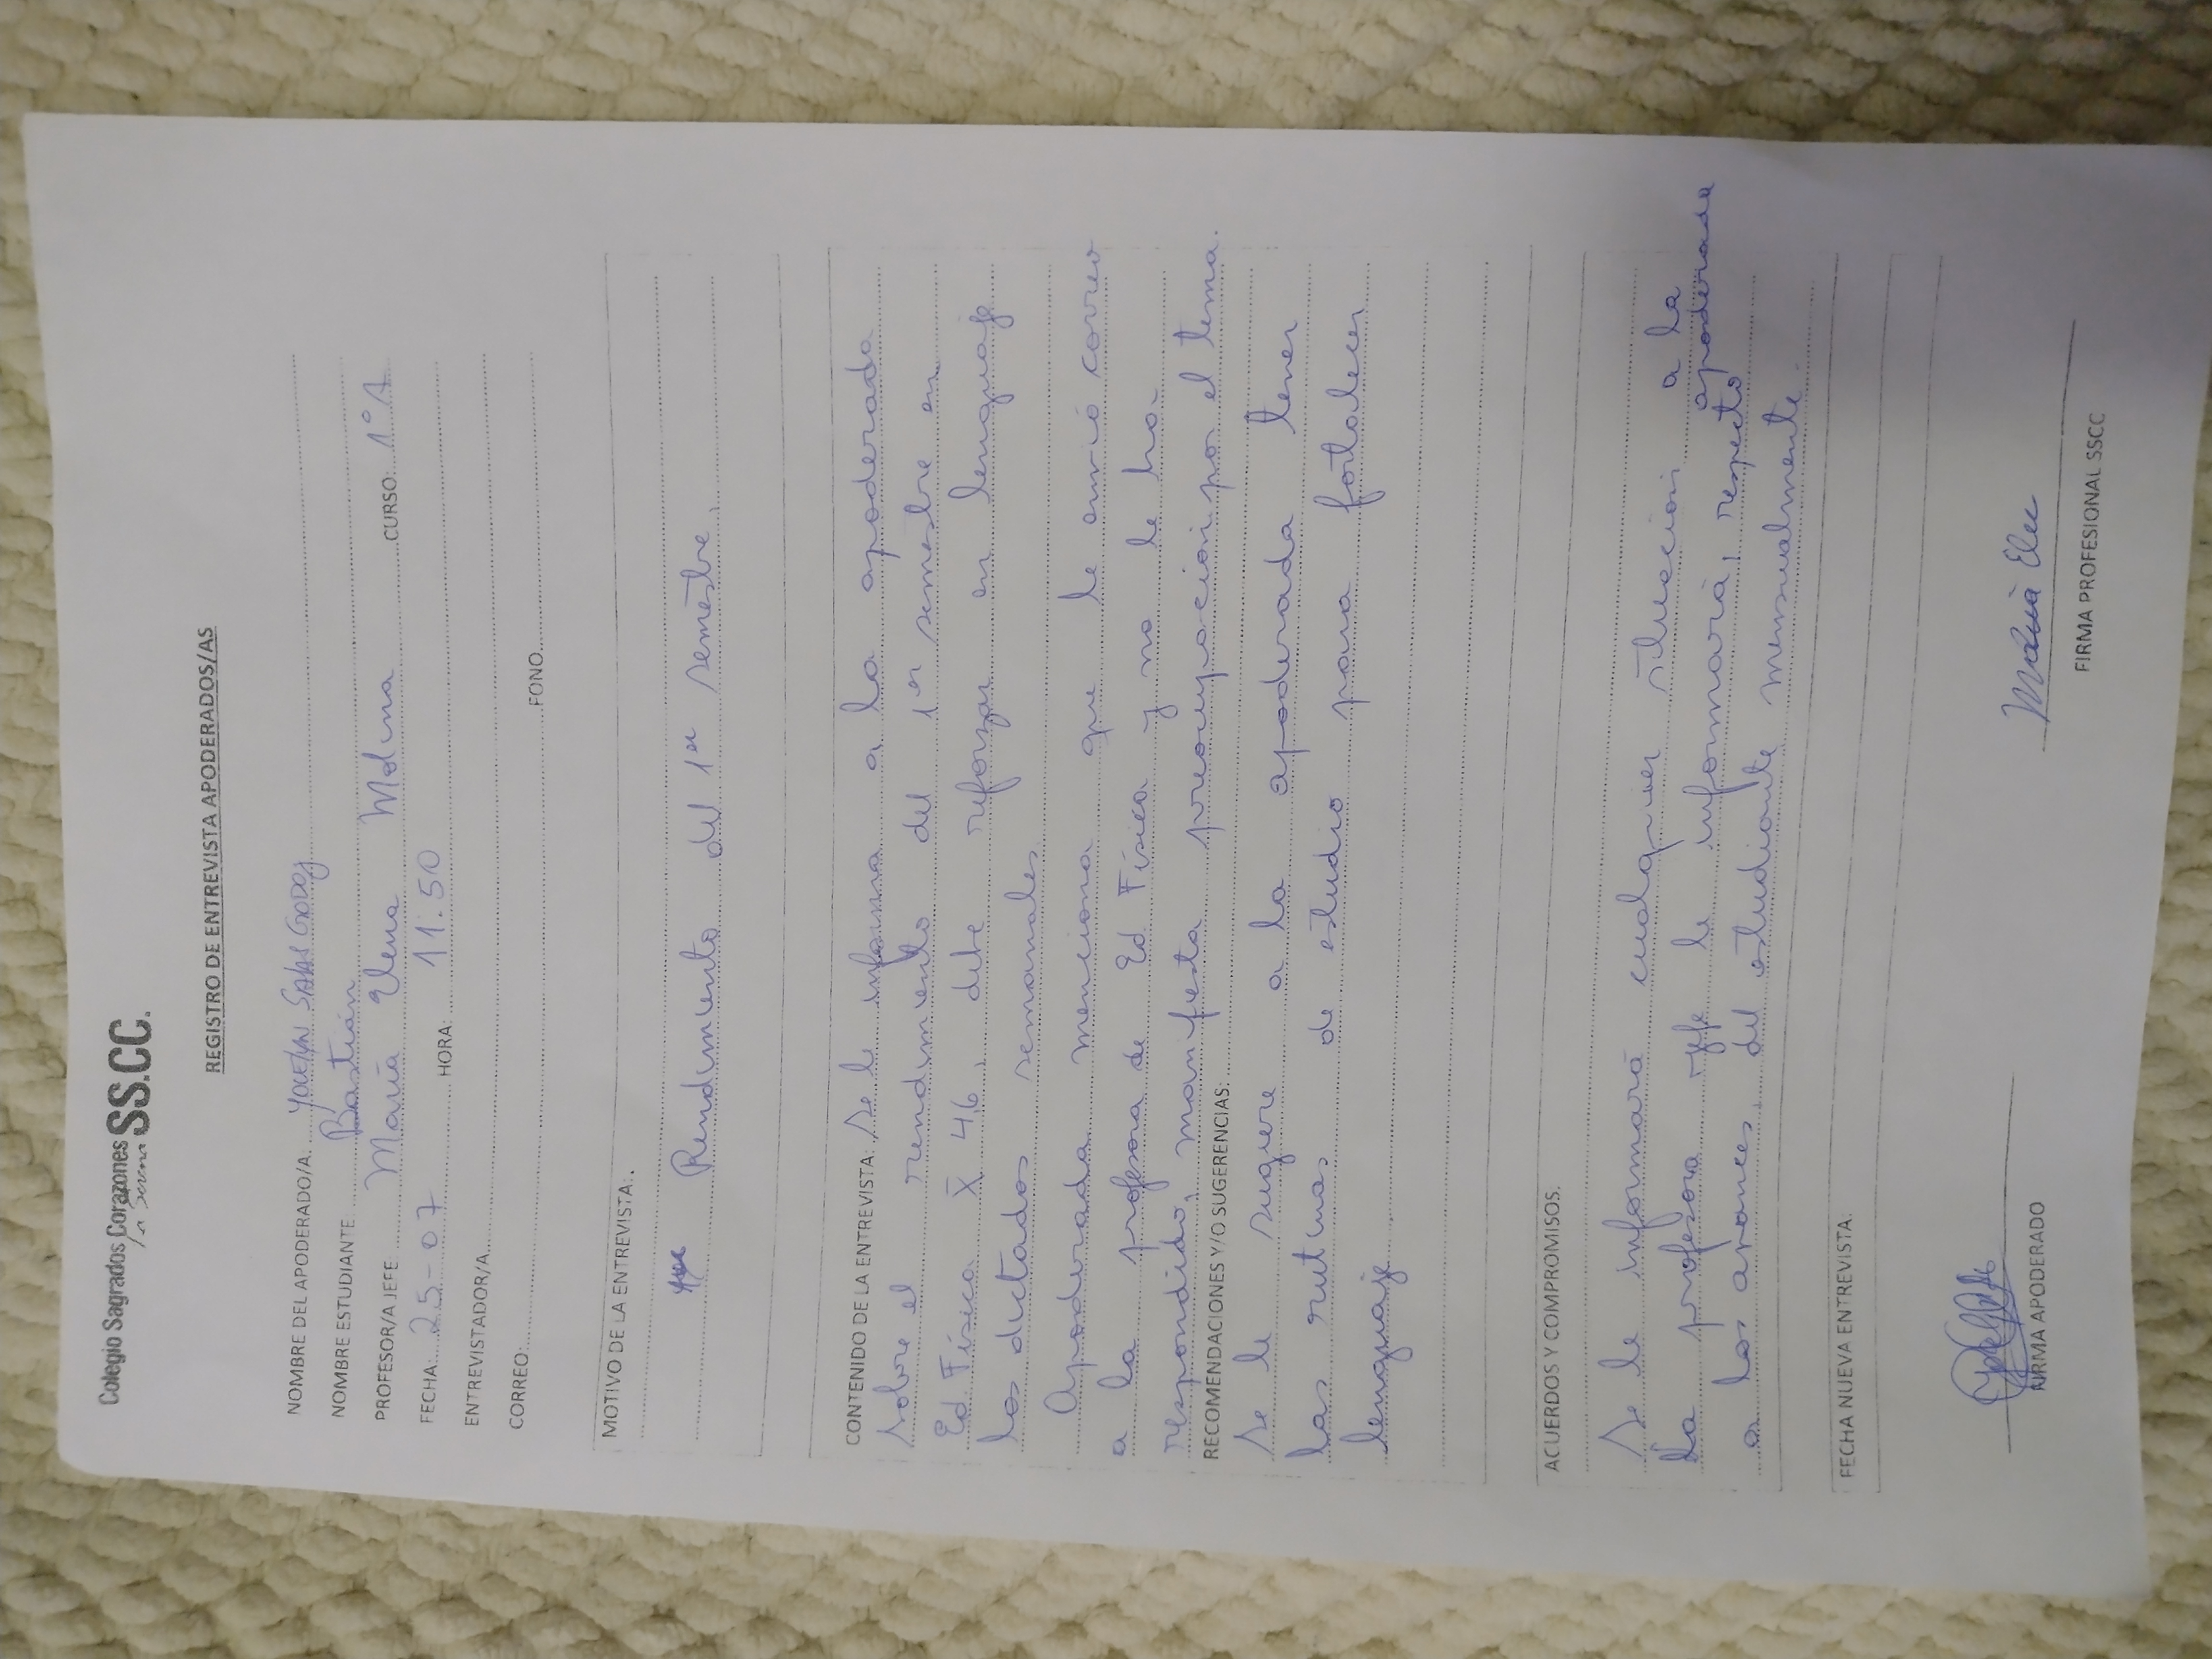 Colegio Sagrados Corazones SS.CC.
La Serena
REGISTRO DE ENTREVISTA APODERADOS/AS
NOMBRE DEL APODERADO/A: SALAS GODOY
NOMBRE ESTUDIANTE Bastián
PROFESOR/A JEFE María Elena Molina CURSO: 1°A
FECHA: 25-07 HORA: 11:50
ENTREVISTADOR/A
CORREO: FONO
MOTIVO DE LA ENTREVISTA:
Rendimiento del 1er semestre.
CONTENIDO DE LA ENTREVISTA: Se le informa a la apoderada
sobre el rendimiento del 1er semestre en
Ed. Física X̄ 4,6, debe reforzar en lenguaje
los dictados semanales
Apoderada menciona que le envió correo
a la profesora de Ed Física y no le ha
respondido, manifiesta preocupación por el tema.
RECOMENDACIONES Y/O SUGERENCIAS:
Se le sugiere a la apoderada tener
las rutinas de estudio para fortalecer
lenguaje
ACUERDOS Y COMPROMISOS.
Se le informará cualquier situación a la
La profesora jefe le informará, respecto apoderada
a los avances del estudiante mensualmente.
FECHA NUEVA ENTREVISTA:
FIRMA APODERADO
María Elena
FIRMA PROFESIONAL SSCC